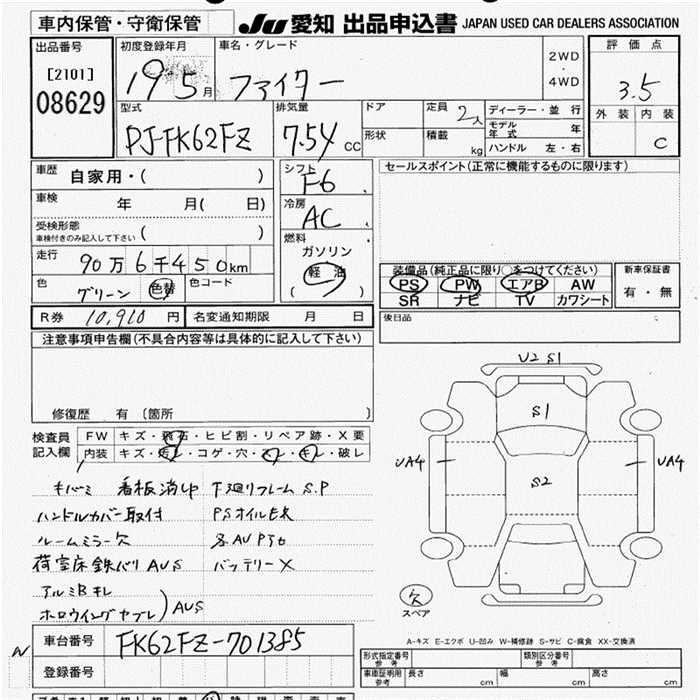 車内保管・守衛保管 JU 愛知 出品申込書 JAPAN USED CAR DEALERS ASSOCIATION
出品番号 初度登録年月 車名・グレード 2WD・4WD 評価点
[2101] 19 5月 ファイター 3.5
08629
型式 排気量 ドア 定員 2人 ディーラー・並行 外装 内装
PJ-FK62FZ 7.54 CC 形状 積載 kg モデル年式 年 C
ハンドル 左・右
車歴 自家用・( ) シフト F6 セールスポイント(正常に機能するものに限ります)
車検 年 月( 日) 冷房 AC
受検形態 ( )
車検付きのみ記入して下さい
燃料 ガソリン
走行 90万6千450km 軽油
( )
装備品(純正品に限り○をつけてください) 新車保証書
色 グリーン 色替 色コード PS PW エアB AW 有・無
SR ナビ TV カワシート
R券 10,910円 名変通知期限 月 日 後日品
注意事項申告欄(不具合内容等は具体的に記入して下さい)
修復歴 有〔箇所 〕
U2 S1
S1
UA4 S2 UA4
検査員記入欄 FW キズ・飛石・ヒビ割・リペア跡・X要
内装 キズ・汚レ・コゲ・穴・スレ・キレ・破レ
キバミ 看板消し 下廻リフレーム S.P
ハンドルカバー取付 PSオイルモレ
ルームミラー欠
荷室床鉄バリ AUS バッテリーX
アルミBキレ
ホロウイングヤブレ) AUS
欠
スペア
A-キズ E-エクボ U-凹み W-補修跡 S-サビ C-腐食 XX-交換済
車台番号 FK62FZ-701385
登録番号
形式指定番号 参考 類別区分番号 参考
車庫証明用 参考 長さ cm 幅 cm 高さ cm